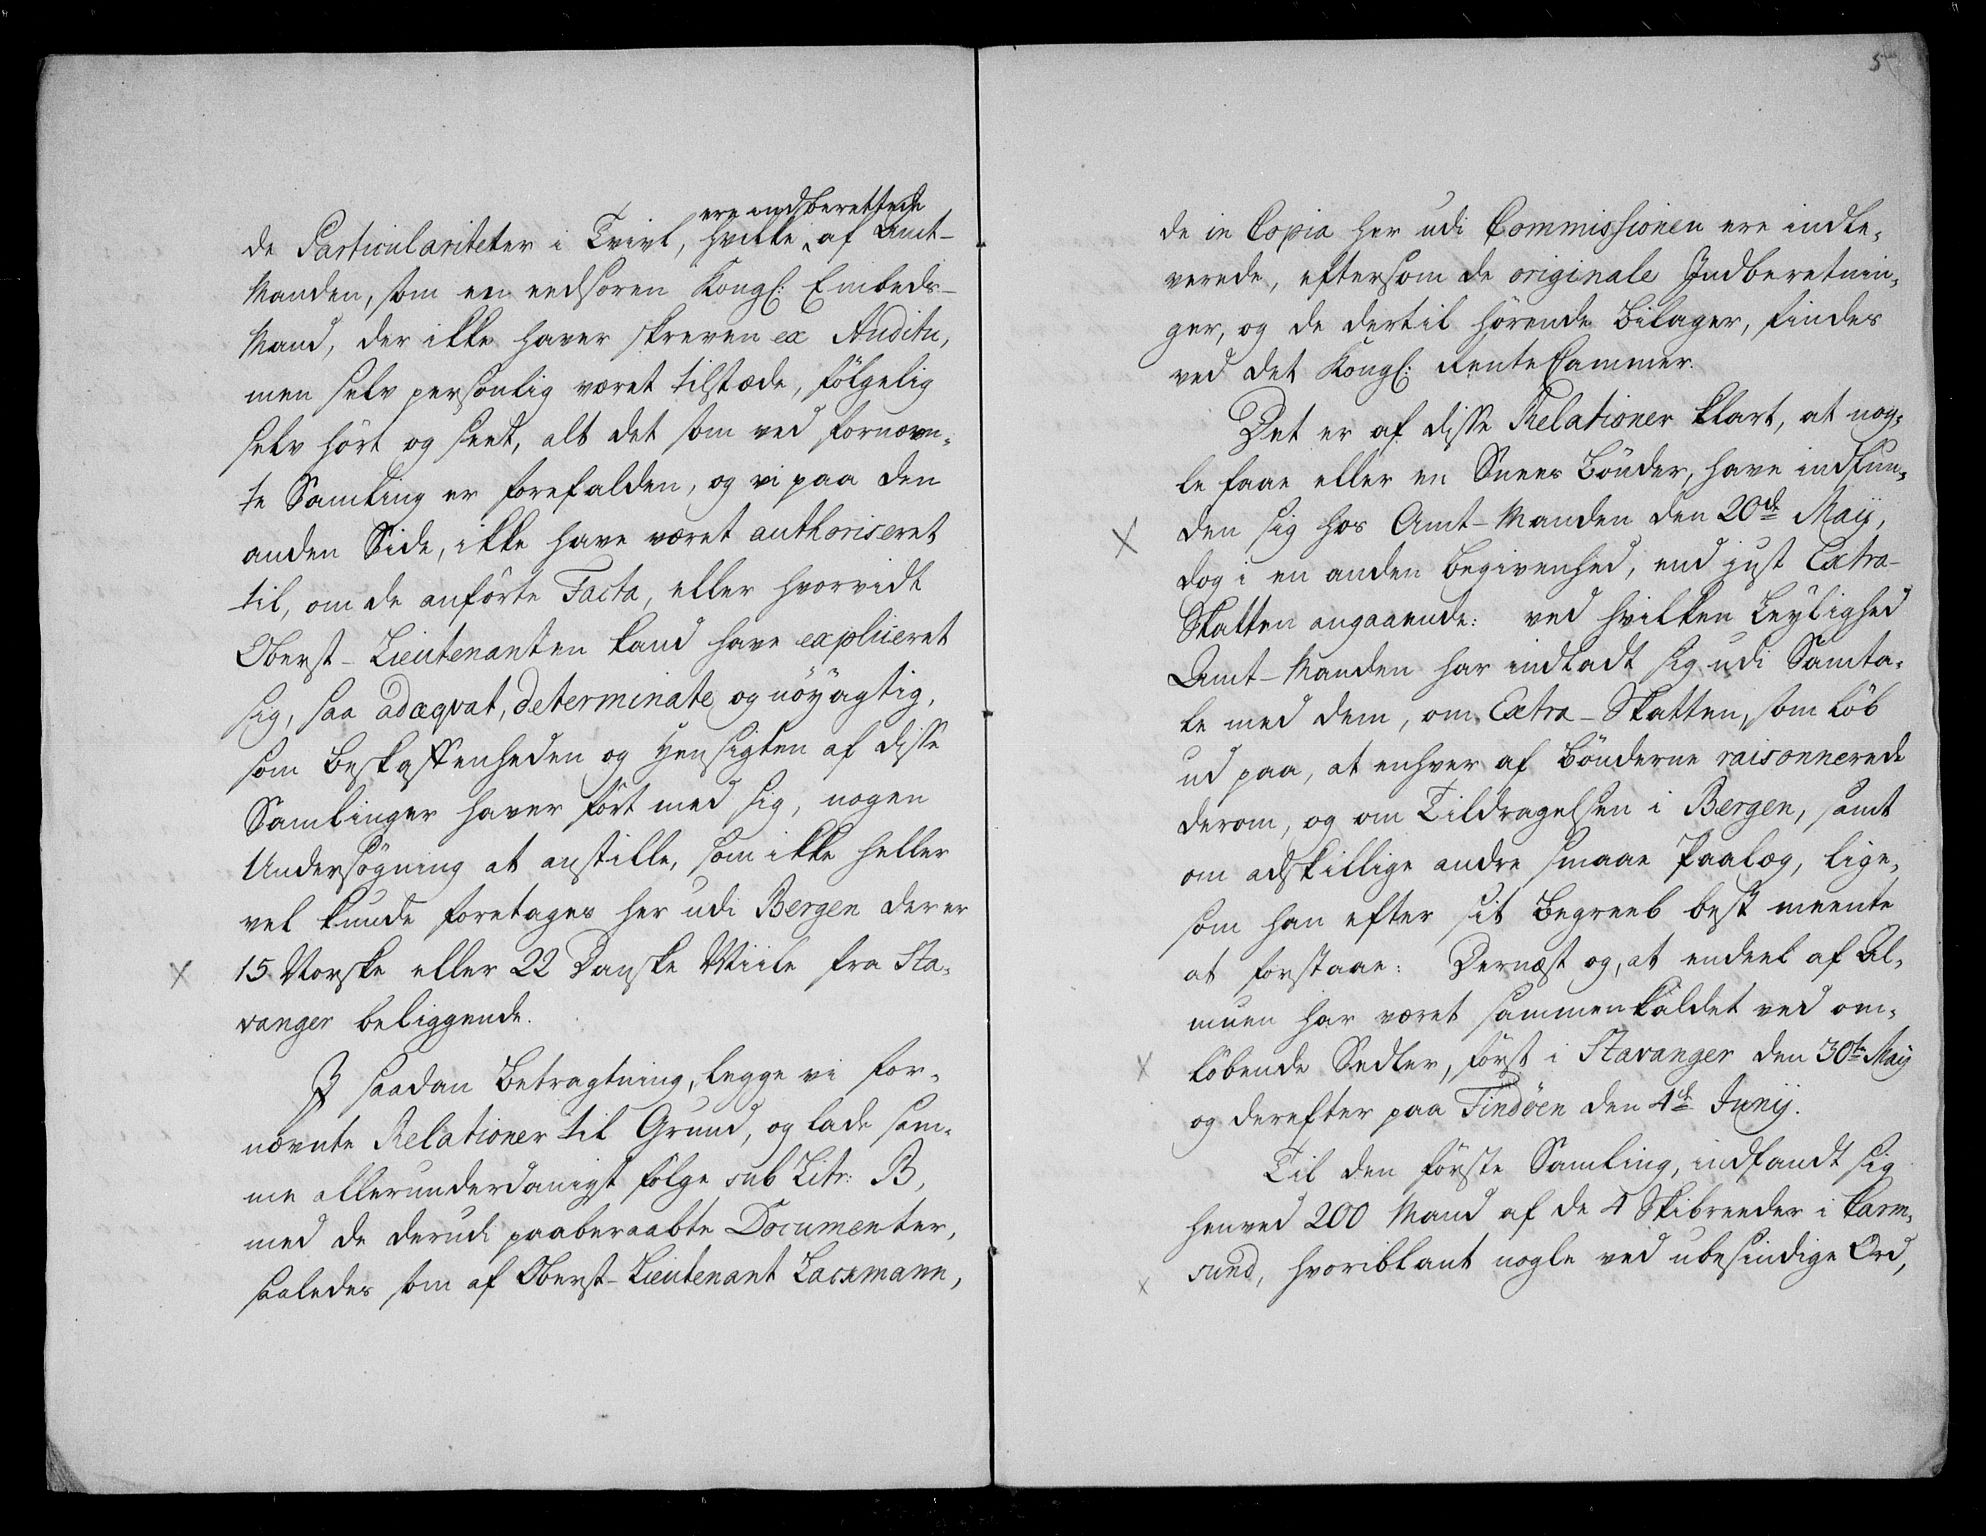 de Particulariteter i Tvivl, hvilke ere indberettede af Amt-
Manden, som en eedsoren Kongl: Embeds-
Mand, der ikke haver skreven ex Auditu,
men selv personlig været tilstæde, fölgelig
selv hört og seet, alt det som ved fornævn-
te Samling er forefalden, og vi paa den
anden Side, ikke have været authoriseret
til, om de anförte Facta, eller hvorvidt
Oberst-Lieutenanten kand have expliceret
sig, saa adæqvat, determinate og nöyagtig,
som Beskaffenheden og Hensigten af disse
Samlinger haver fört med sig, nogen
Undersögning at anstille, som ikke heller
vel kunde foretages her udi Bergen der er
15 Norske eller 22 Danske Miile fra Sta-
vanger beliggende.
I saadan Betragtning, legge vi for-
nævnte Relationer til Grund, og lade sam-
me allerunderdanigst fölge sub Litr: B,
med de derudi paaberaabte Documenter,
saaledes som af Oberst-Lieutenant Lachmann,
5
de in Copia her udi Commissionen ere indle-
verede, eftersom de originale Indberetnin-
ger, og de dertil hörende Bilager, findes
ved det Kongl: Rente Cammer.
Det er af disse Relationer klart, at nog-
le faae eller en Snees Bönder, have indfun-
den sig hos Amt-Manden den 20de Maij,
dog i en anden Begivenhed, end just Extra-
Skatten angaaende: ved hvilken Leylighed
Amt-Manden har indladt sig udi Samta-
le med dem, om Extra-Skatten, som löb
ud paa, at enhver af Bönderne raisonnerede
derom, og om Tildragelsen i Bergen, samt
om adskillige andre smaae Paalæg, lige-
som han efter sit Begreeb best meente
at forstaae: Dernæst og, at endeel af Al-
muen har været sammenkaldet ved om-
löbende Sedler, först i Stavanger den 30te Maij
og derefter paa Findöen den 4de Junij.
Til den förste Samling, indfandt sig
henved 200 Mand af de 4 Skibreeder i Karm-
sund, hvoriblant nogle ved ubesindige Ord,